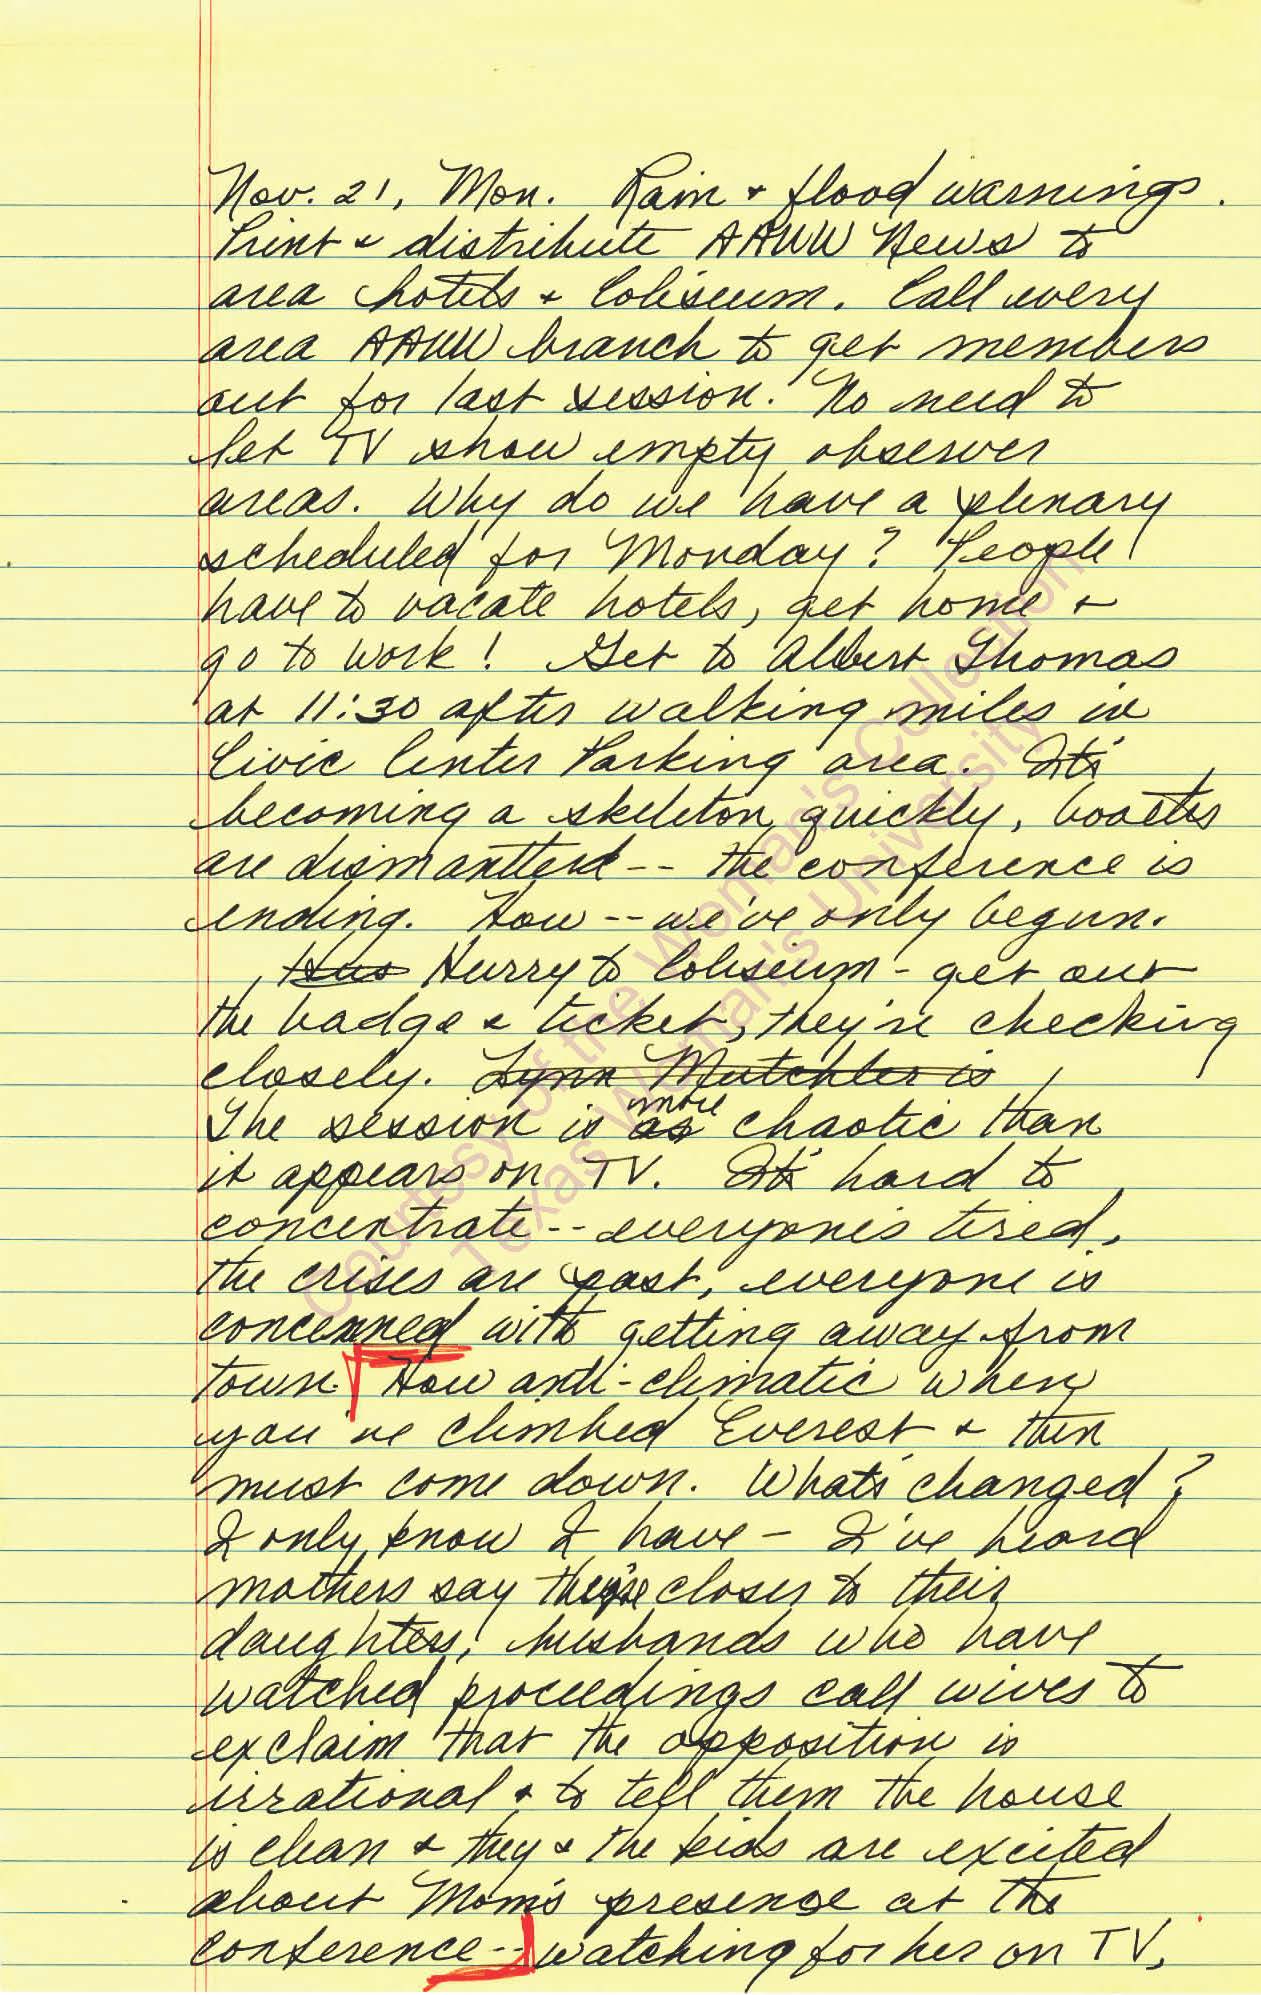 Nov. 21, Mon. Rain & flood warnings.
Print & distribute AAUW News to
area hotels & Coliseum. Call every
area AAUW branch to get members
out for last session. No need to
let TV show empty observer
areas. Why do we have a plenary
scheduled for Monday? People
have to vacate hotels, get home &
go to work! Get to Albert Thomas
at 11:30 after walking miles in
Civic Center Parking area. It's
becoming a skeleton quickly, booths
are dismantled -- the conference is
ending. How -- we've only begun.
Has Hurry to Coliseum - get out
the badge & ticket, they're checking
closely. Lynn Mutchler is
The session is as more chaotic than
it appears on TV. It's hard to
concentrate -- everyone's tired,
the crises are past, everyone is
concerned with getting away from
town. How anti-climatic when
you've climbed Everest & then
must come down. What's changed?
I only know I have - I've heard
mothers say they're closer to their
daughters, husbands who have
watched proceedings call wives to
exclaim that the opposition is
irrational & to tell them the house
is clean & they & the kids are excited
about Mom's presence at the
conference -- watching for her on TV,
Courtesy of the Woman's Collection
Texas Woman's University